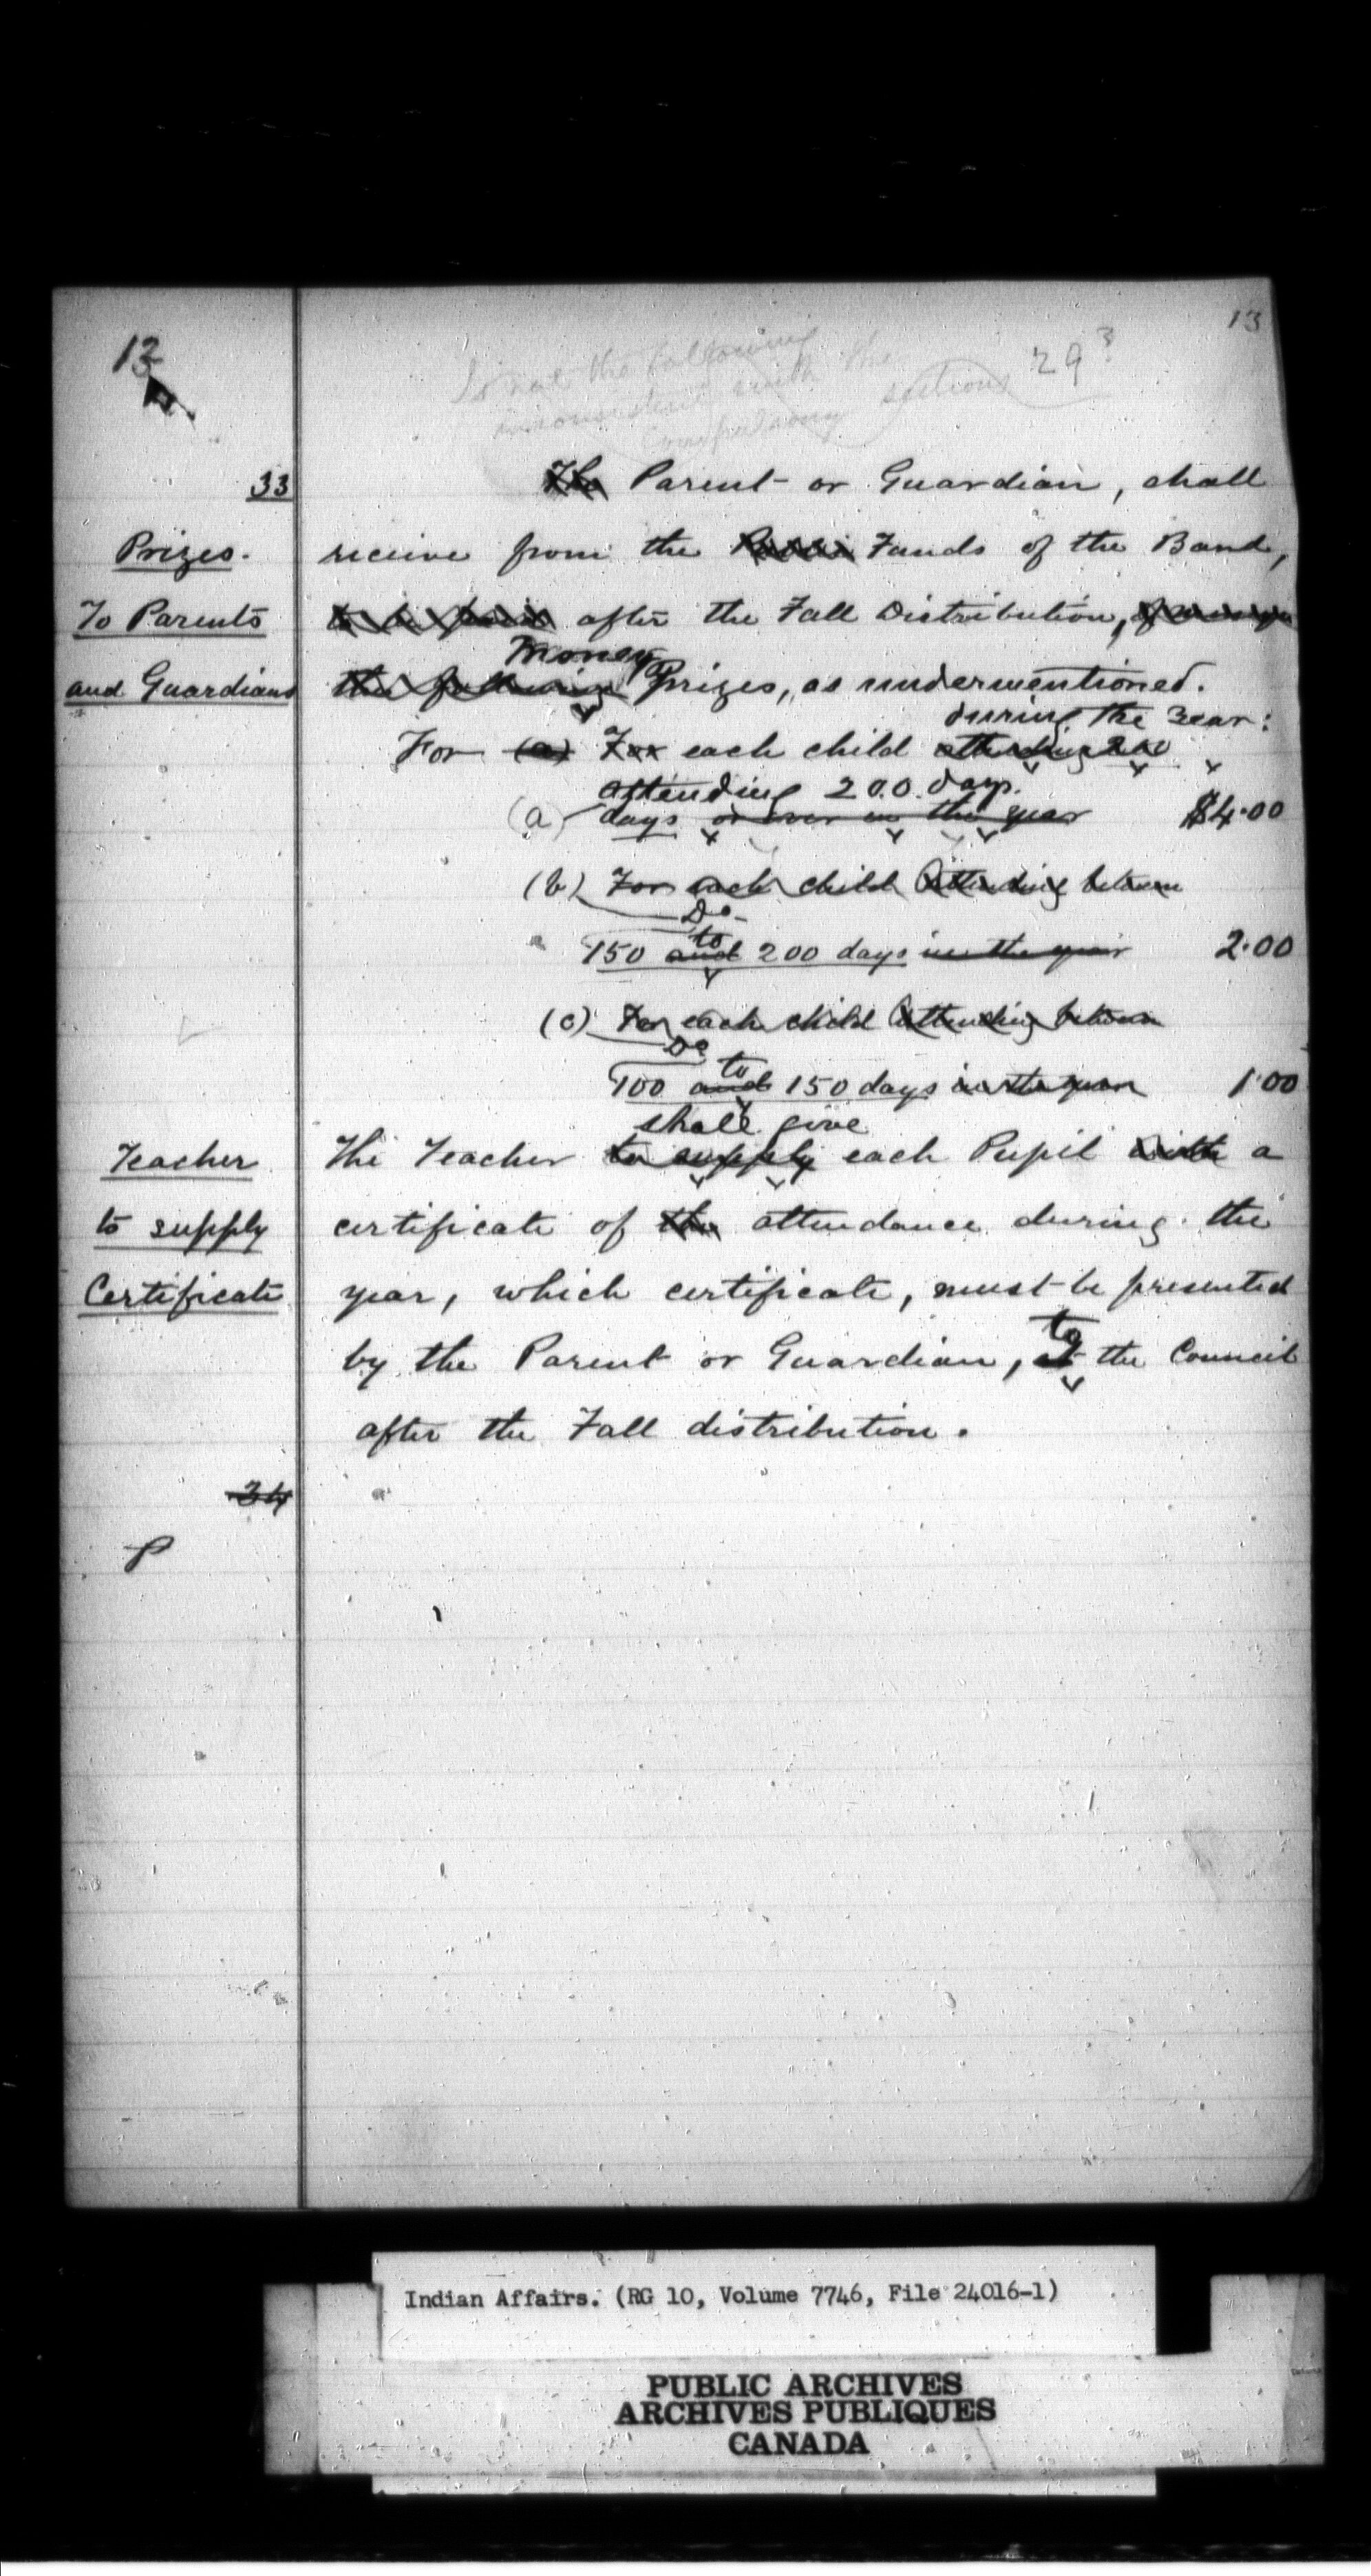 13
13
Is not the following
inconsistent with the
Compulsory sections 29?
33
~~The~~ Parent or Guardian, shall
Prizes.
receive from the Funds of the Band,
To Parents
~~to be paid~~ after the Fall Distribution,
Money
and Guardians
~~the following~~ Prizes, as undermentioned.
during the Year:
For ~~(a)~~ ~~For~~ each child ~~attending 200~~
attending 200 days.
(a) days ~~or over in the year~~ $4.00
(b) ~~For each child Attending between~~
Do
150 ~~and~~ to 200 days ~~in the year~~ 2.00
(c) ~~For each child Attending between~~
Do
100 ~~and~~ to 150 days ~~in the year~~ 1.00
shall give
Teacher
The Teacher ~~to supply~~ each Pupil ~~with~~ a
to supply
certificate of ~~the~~ attendance during the
Certificate
year, which certificate, must be presented
by the Parent or Guardian, ~~at~~ to the Council
after the Fall distribution.
~~34~~
P
Indian Affairs. (RG 10, Volume 7746, File 24016-1)
PUBLIC ARCHIVES
ARCHIVES PUBLIQUES
CANADA